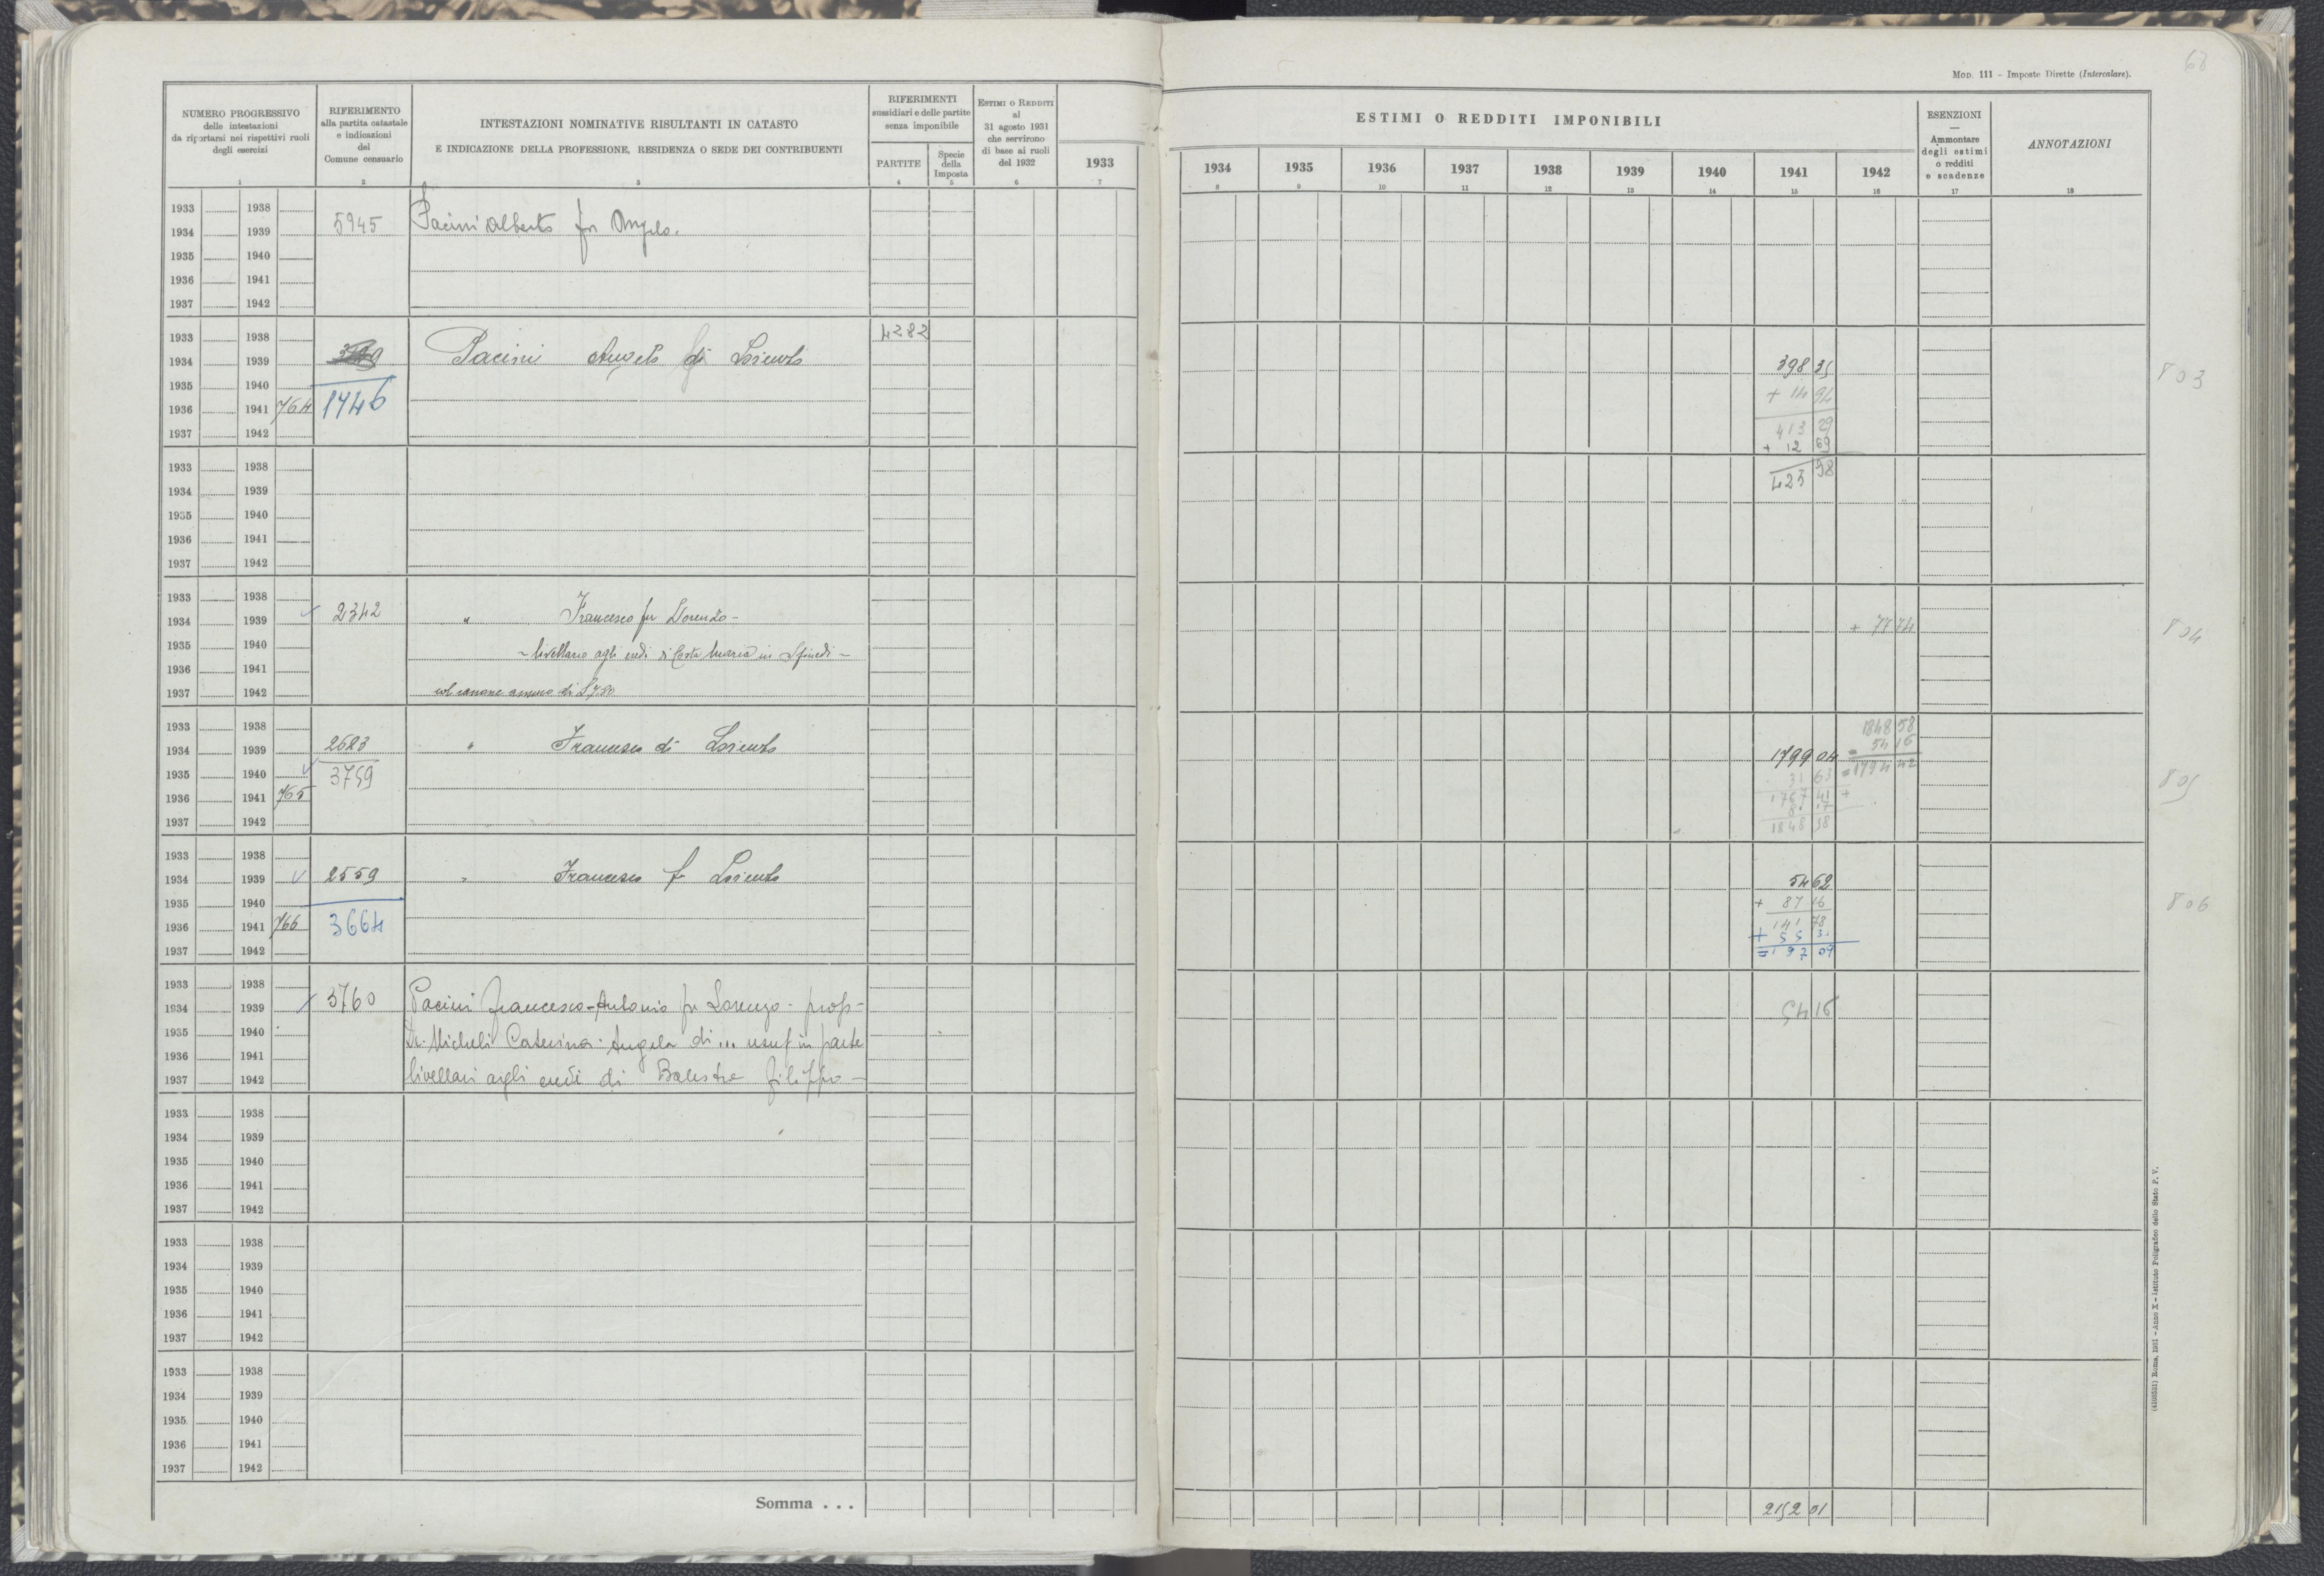 68
Mod. 111 – Imposte Dirette (Intercalare).
NUMERO PROGRESSIVO
delle intestazioni
da riportarsi nei rispettivi ruoli
degli esercizi
1
RIFERIMENTO
alla partita catastale
e indicazioni
del
Comune censuario
2
INTESTAZIONI NOMINATIVE RISULTANTI IN CATASTO
E INDICAZIONE DELLA PROFESSIONE, RESIDENZA O SEDE DEI CONTRIBUENTI
3
RIFERIMENTI
sussidiari e delle partite
senza imponibile
PARTITE
4
Specie
della
Imposta
5
Estimi o Redditi
al
31 agosto 1931
che servirono
di base ai ruoli
del 1932
6
1933
7
ESTIMI O REDDITI IMPONIBILI
1934 1935 1936 1937 1938 1939 1940 1941 1942
8 9 10 11 12 13 14 15 16
ESENZIONI
—
Ammontare
degli estimi
o redditi
e scadenze
17
ANNOTAZIONI
18
1933 1938
1934 1939 5945 Pacini Alberto fu Angelo.
1935 1940
1936 1941
1937 1942
1933 1938 4282
1934 1939 Pacini Angelo di Lorenzo 398 35 803
1935 1940 + 14 94
1936 1941 764 1746 413 29
1937 1942 + 12 69
1933 1938 425 98
1934 1939
1935 1940
1936 1941
1937 1942
1933 1938
1934 1939 2342 " Francesco fu Lorenzo – + 77 74 804
1935 1940 – livellario agli eredi di Costa Maria in Spinedi –
1936 1941
1937 1942 col canone annuo di £ 7.50
1933 1938 1848 58
1934 1939 2623 " Francesco di Lorenzo 1799 04 – 54 16
1935 1940 3759 31 63 = 1794 42 805
1936 1941 765 1767 41 +
1937 1942 81 17
1848 58
1933 1938
1934 1939 2559 " Francesco fu Lorenzo 54 62
1935 1940 + 87 16 806
1936 1941 766 3664 141 78
1937 1942 + 55 31
= 197 09
1933 1938
1934 1939 3760 Pacini Francesco-Antonio fu Lorenzo - prop - 54 16
1935 1940 De-Micheli Caterina-Angela di ... usuf in parte
1936 1941
1937 1942 livellari agli eredi di Balestre Filippo –
1933 1938
1934 1939
1935 1940
1936 1941
1937 1942
1933 1938
1934 1939
1935 1940
1936 1941
1937 1942
1933 1938
1934 1939
1935 1940
1936 1941
1937 1942
Somma . . . 2152 01
(4103531) Roma, 1931 – Anno X – Istituto Poligrafico dello Stato P. V.